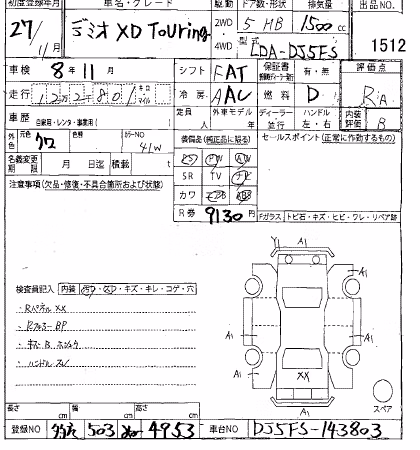 初度登録年月 車名・グレード 駆動 ドア数・形状 排気量 出品NO.
27/11月 デミオ XD Touring 2WD 4WD 5 HB 1500cc
型式 LDA-DJ5FS 1512
車検 8年11月 シフト FAT 保証書 有・無 評価点
走行 122801 キロ マイル 冷房 AAC 燃料 D RA
車歴 自家用・レンタ・事業用( ) 定員 人 外車モデル 年 ディーラー 並行 ハンドル 左・右 内装評価 B
外色 元色 クロ カラーNO 41W 装備品(純正品に限る) セールスポイント(正常に作動するもの)
名義変更期限 月 日迄 積載 t PS PW AW
注意事項(欠品・修復・不具合箇所および状態) SR TV ナビ
カワ エアB ABS
R券 9130円 Fガラス トビ石・キズ・ヒビ・ワレ・リペア跡
検査員記入 内装 汚・スレ・キズ・キレ・コゲ・穴
・Rパネル XX
・Rフロアー BP
・ハンドル スレ
A1
A1
A1
A1
A1
A1
XX
A1
スペア
長さ cm 幅 cm 高さ cm
登録NO 503 4953 車台NO DJ5FS-143803